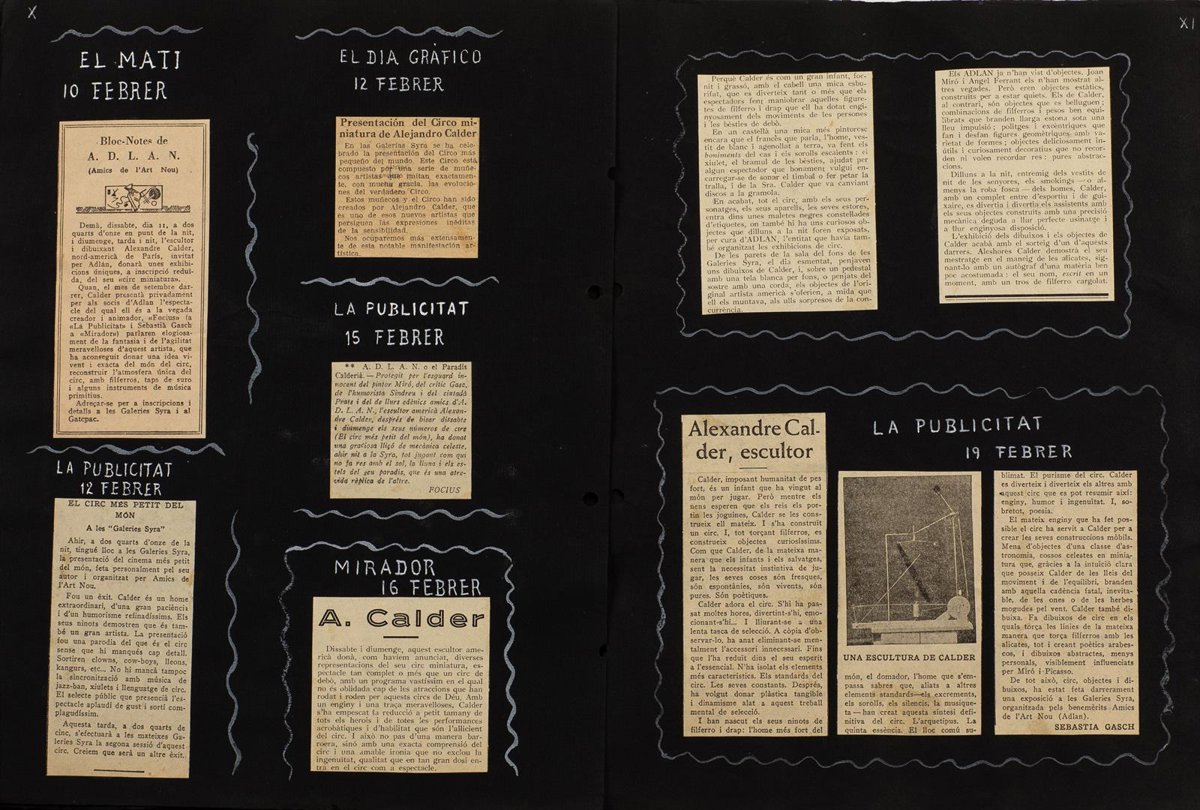 X
EL MATI
10 FEBRER
Bloc-Notes de
A. D. L. A. N.
(Amics de l'Art Nou)
Demà, dissabte, dia 11, a dos
quarts d'onze en punt de la nit,
i diumenge, tarda i nit, l'escultor
i dibuixant Alexandre Calder,
nord-americà de París, invitat
per Adlan, donarà unes exhibi-
cions úniques, a inscripció redui-
da, del seu «circ miniatura».
Quan, el mes de setembre dar-
rer, Calder presentà privadament
per als socis d'Adlan l'especta-
cle del qual ell és a la vegada
creador i animador, «Focius» (a
«La Publicitat» i Sebastià Gasch
a «Mirador») parlaren elogiosa-
ment de la fantasia i de l'agilitat
meravelloses d'aquest artista, que
ha aconseguit donar una idea vi-
vent i exacta del món del circ,
reconstruir l'atmosfera única del
circ, amb filferros, taps de suro
i alguns instruments de música
primitius.
Adreçar-se per a inscripcions i
detalls a les Galeries Syra i al
Gatcpac.
LA PUBLICITAT
12 FEBRER
EL CIRC MÉS PETIT DEL
MÓN
A les "Galeries Syra"
Ahir, a dos quarts d'onze de la
nit, tingué lloc a les Galeries Syra,
la presentació del cinema més petit
del món, feta personalment pel seu
autor i organitzat per Amics de
l'Art Nou.
Fou un èxit. Calder és un home
extraordinari, d'una gran paciència
i d'un humorisme refinadíssims. Els
seus ninots demostren que és tam-
bé un gran artista. La presentació
fou una paròdia del que és el circ
sense que hi manqués cap detall.
Sortiren clowns, cow-boys, lleons,
kangurs, etc... No hi mancà tampoc
la sincronització amb música de
jazz-ban, xiulets i llenguatge de circ.
El selecte públic que presencià l'es-
pectacle aplaudí de gust i sortí com-
plagudíssim.
Aquesta tarda, a dos quarts de
cinc, s'efectuarà a les mateixes Ga-
leries Syra la segona sessió d'aquest
circ. Creiem que serà un altre èxit.
EL DIA GRÀFICO
12 FEBRER
Presentación del Circo mi-
niatura de Alejandro Calder
En las Galerías Syra se ha cele-
brado la presentación del Circo más
pequeño del mundo. Este Circo está
compuesto por una serie de muñe-
cos artistas que imitan exactamen-
te, con mucha gracia, las evolucio-
nes del verdadero Circo.
Estos muñecos y el Circo han sido
creados por Alejandro Calder, que
es uno de esos nuevos artistas que
persiguen las expresiones inéditas
de la sensibilidad.
Nos ocuparemos más extensamen-
te de esta notable manifestación ar-
tística.
LA PUBLICITAT
15 FEBRER
** A. D. L. A. N. o el Paradís
Calderià. — Protegit per l'esguard in-
nocent del pintor Miró, del crític Gasc,
de l'humorista Sindreu i del ciutadà
Prats i del de llurs edènics amics d'A.
D. L. A. N., l'escultor americà Alexan-
dre Calder, després de bisar dissabte
i diumenge els seus números de circ
(El circ més petit del món), ha donat
una graciosa lliçó de mecànica celeste,
ahir nit a la Syra, tot jugant com qui
no fa res amb el sol, la lluna i els es-
tels del seu paradís, que és una atre-
vida rèplica de l'altre.
FOCIUS
MIRADOR
16 FEBRER
A. Calder
Dissabte i diumenge, aquest escultor ame-
ricà donà, com havíem anunciat, diverses
representacions del seu circ miniatura, es-
pectacle tan complet o més que un circ de
debò, amb un programa vastíssim en el qual
no és oblidada cap de les atraccions que han
rodat i roden per aquests circs de Déu. Amb
un enginy i una traça meravelloses, Calder
s'ha empescat la reducció a petit tamany de
tots els herois i de totes les performances
acrobàtiques i d'habilitat que són l'al·licient
del circ. I això no pas d'una manera bar-
roera, sinó amb una exacta comprensió del
circ i una amable ironia que no exclou la
ingenuïtat, qualitat que en tan gran dosi en-
tra en el circ com a espectacle.
XI
Perquè Calder és com un gran infant, for-
nit i grassó, amb el cabell una mica esbo-
rifat, que es diverteix tant o més que els
espectadors fent maniobrar aquelles figure-
tes de filferro i drap que ell ha dotat engi-
nyosament dels moviments de les persones
i les bèsties de debò.
En un castellà una mica més pintoresc
encara que el francès que parla, l'home, ves-
tit de blanc i agenollat a terra, va fent els
boniments del cas i els sorolls escaients : el
xiulet, el bramul de les bèsties, ajudat per
algun espectador que bonament vulgui en-
carregar-se de sonar el timbal o fer petar la
tralla, i de la Sra. Calder que va canviant
discos a la gramola.
En acabat, tot el circ, amb els seus per-
sonatges, els seus aparells, les seves estores,
entra dins unes maletes negres constellades
d'etiquetes, on també hi ha uns curiosos ob-
jectes que dilluns a la nit foren exposats,
per cura d'ADLAN, l'entitat que havia tam-
bé organitzat les exhibicions de circ.
De les parets de la sala del fons de les
Galeries Syra, el dia esmentat, penjaven
uns dibuixos de Calder, i, sobre un pedestal
amb una tela blanca per fons, o penjats del
sostre amb una corda, els objectes de l'ori-
ginal artista americà s'oferien, a mida que
ell els muntava, als ulls sorpresos de la con-
currència.
Els ADLAN ja n'han vist d'objectes. Joan
Miró i Angel Ferrant els n'han mostrat al-
tres vegades. Però eren objectes estàtics,
construïts per a estar quiets. Els de Calder,
al contrari, són objectes que es belluguen;
combinacions de filferros i pesos ben equili-
brats que branden llarga estona sota una
lleu impulsió ; politges i excèntriques que
fan i desfan figures geomètriques amb va-
rietat de formes ; objectes deliciosament in-
útils i curiosament decoratius que no recor-
den ni volen recordar res : pures abstrac-
cions.
Dilluns a la nit, entremig dels vestits de
nit de les senyores, els smokings — o al-
menys la roba fosca — dels homes, Calder,
amb un complet entre d'esportiu i de gui-
xaire, es divertia i divertia els assistents amb
els seus objectes construïts amb una precisió
mecànica deguda a llur perfecte usinatge i
a llur enginyosa disposició.
L'exhibició dels dibuixos i els objectes de
Calder acabà amb el sorteig d'un d'aquests
darrers. Aleshores Calder demostrà el seu
mestratge en el maneig de les alicates, sig-
nant-lo amb un autògraf d'una matèria ben
poc acostumada : el seu nom, escrit en un
moment, amb un tros de filferro cargolat.
LA PUBLICITAT
19 FEBRER
Alexandre Cal-
der, escultor
Calder, imposant humanitat de pes
fort, és un infant que ha vingut al
món per jugar. Però mentre els
nens esperen que els reis els por-
tin les joguines, Calder se les cons-
trueix ell mateix. I s'ha construït
un circ. I, tot torçant filferros, es
construeix objectes curiosíssims.
Com que Calder, de la mateixa ma-
nera que els infants i els salvatges,
sent la necessitat instintiva de ju-
gar, les seves coses són fresques,
són espontànies, són vivents, són
pures. Són poètiques.
Calder adora el circ. S'hi ha pas-
sat moltes hores, divertint-s'hi, emo-
cionant-s'hi... I lliurant-se a una
lenta tasca de selecció. A còpia d'ob-
servar-lo, ha anat eliminant-se men-
talment l'accessori innecessari. Fins
que l'ha reduït dins el seu esperit
a l'essencial. N'ha isolat els elements
més característics. Els standards del
circ. Les seves constants. Després,
ha volgut donar plàstica tangible
i dinamisme alat a aquest treball
mental de selecció.
I han nascut els seus ninots de
filferro i drap: l'home més fort del
UNA ESCULTURA DE CALDER
món, el domador, l'home que s'em-
passa sabres que, aliats a altres
elements standards—els excrements,
els sorolls, els silencis, la musique-
ta— han creat aquesta síntesi defi-
nitiva del circ. L'arquetipus. La
quinta essència. El lloc comú su-
blimat. El purisme del circ. Calder
es diverteix i diverteix els altres amb
aquest circ que es pot resumir així:
enginy, humor i ingenuïtat. I, so-
bretot, poesia.
El mateix enginy que ha fet pos-
sible el circ ha servit a Calder per a
crear les seves construccions mòbils.
Mena d'objectes d'una classe d'as-
tronomia, cossos celestes en minia-
tura que, gràcies a la intuïció clara
que posseix Calder de les lleis del
moviment i de l'equilibri, branden
amb aquella cadència fatal, inevita-
ble, de les ones o de les herbes
mogudes pel vent. Calder també di-
buixa. Fa dibuixos de circ en els
quals torça les línies de la mateixa
manera que torça filferros amb les
alicates, tot i creant poètics arabes-
cos, i dibuixos abstractes, menys
personals, visiblement influenciats
per Miró i Picasso.
De tot això, circ, objectes i di-
buixos, ha estat feta darrerament
una exposició a les Galeries Syra,
organitzada pels benemèrits Amics
de l'Art Nou (Adlan).
SEBASTIA GASCH